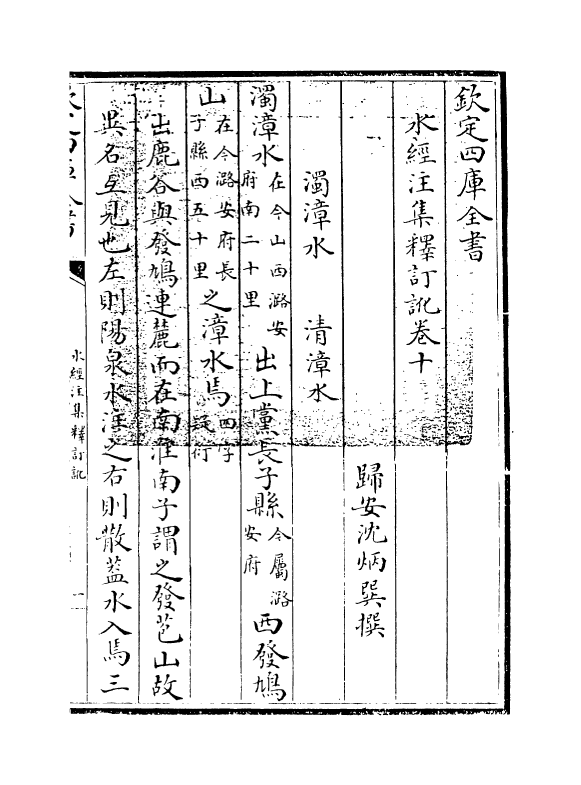 欽定四庫全書
水經注集釋訂訛卷十
歸安沈炳巽撰
濁漳水　清漳水
濁漳水在今山西潞安府南二十里出上黨長子縣今屬潞安府西發鳩
山在今潞安府長子縣西五十里之漳水焉四字疑衍
出鹿谷與發鳩連麓而在南淮南子謂之發苞山故
異名互見也左則陽泉水注之右則散蓋水入焉三
水經注集釋訂訛
一